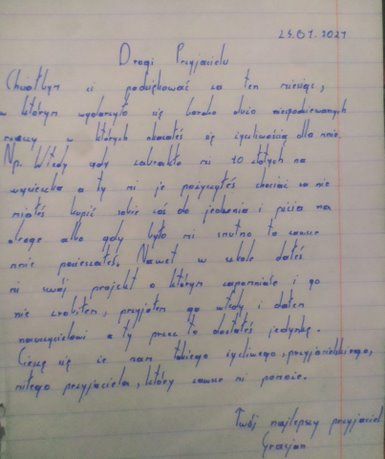 25.01.2021
Drogi Przyjacielu
Chciałbym ci podziękować za ten miesiąc,
w którym wydarzyło się bardzo dużo niespodziewanych
rzeczy w których okazałeś się życzliwością dla mnie.
Np. Wtedy gdy zabrakło mi 10 złotych na
wycieczkę a ty mi je pożyczyłeś chociaż za nie
miałeś kupić sobie coś do jedzenia i picia na
drogę albo gdy było mi smutno to zawsze
mnie pocieszałeś. Nawet w szkole dałeś
mi swój projekt o którym zapomniałem i go
nie zrobiłem, przyjąłem go wtedy i dałem
nauczycielowi a ty przez to dostałeś jedynkę.
Cieszę się że mam takiego życzliwego, przyjacielskiego,
miłego przyjaciela, który zawsze mi pomoże.
Twój najlepszy przyjaciel
Gracjan